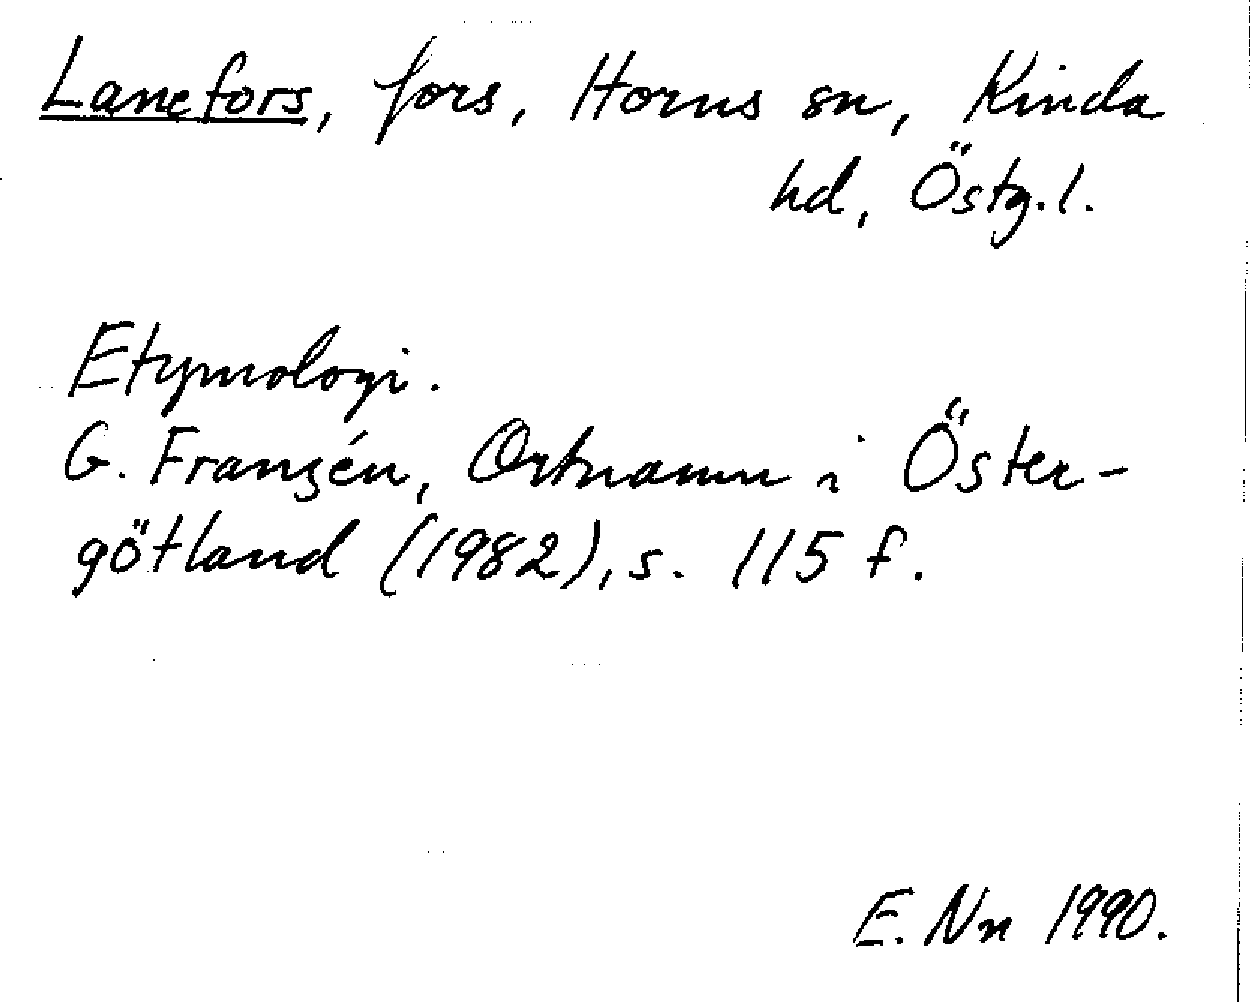 Lanefors, fors, Horns sn, Kinda
hd, Östg.l.
Etymologi.
G. Franzén, Ortnamn i Öster-
götland (1982), s. 115 f.
E. Nn 1990.